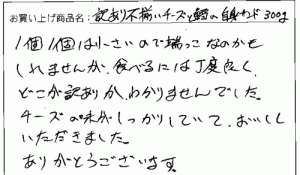 お買い上げ商品名：訳あり不揃いチーズと鱈の白身サンド 300g
1個1個は小さいので端っこなのかも
しれませんが、食べるには丁度良く、
どこが訳ありか、わかりませんでした。
チーズの味がしっかりしていて、おいしく
いただきました。
ありがとうございます。